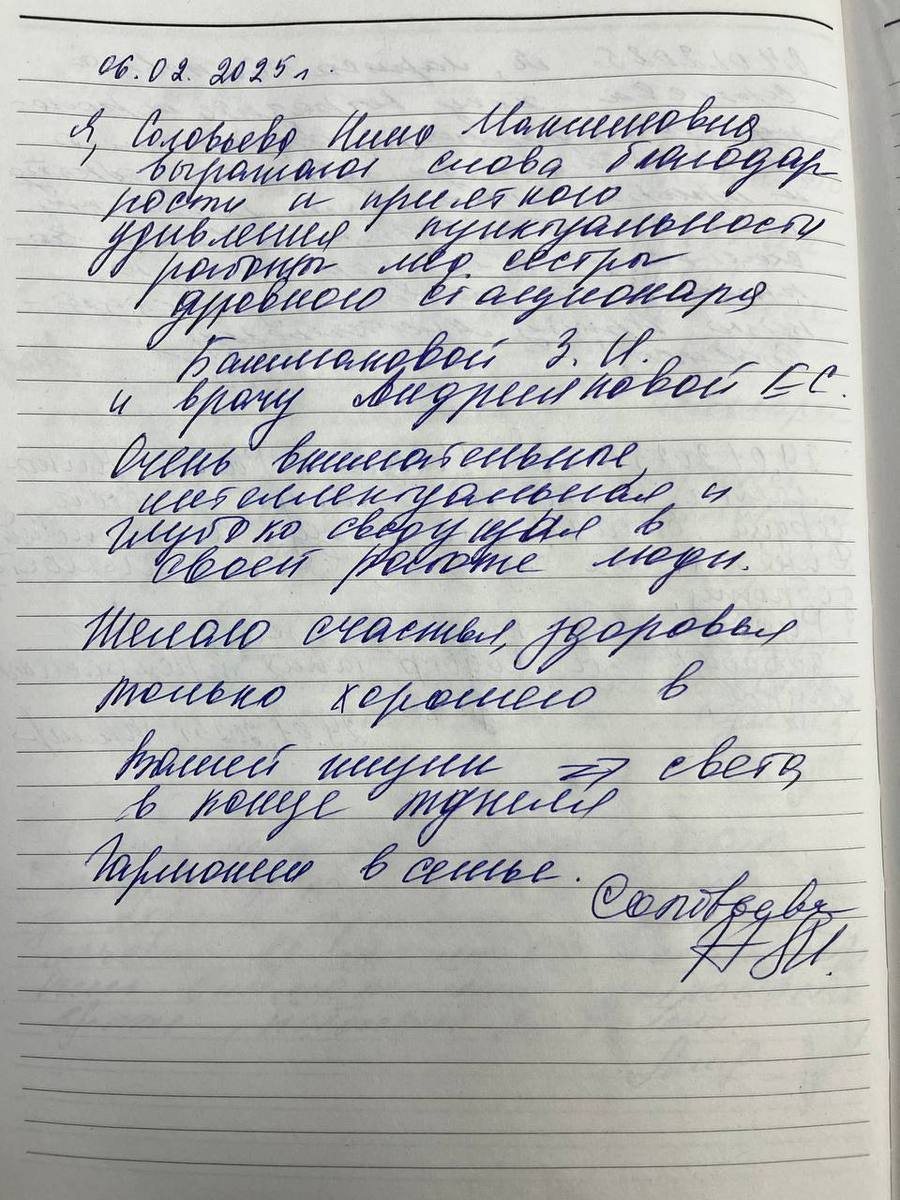 06.02.2025 г.
Я, Соловьева Нина Максимовна
выражаю слова благодар-
ности и приятного
удивления пунктуальности
работы мед сестры
дневного стационара
Башмаковой З. И.
и врачу Андрияновой ЕС.
Очень внимательные,
интеллектуальная и
глубоко сведущая в
своей работе люди.
Желаю счастья, здоровья
только хорошего в
Вашей жизни света
в конце тунеля
Гармонии в семье.
Соловьева
Н М.